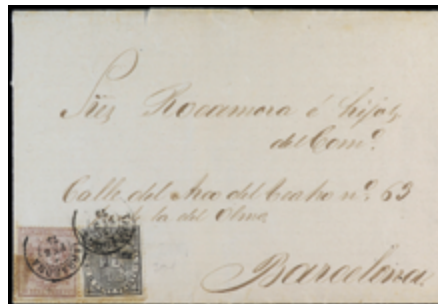 Sres Rocamora é hijos
del Com.o
Calle del Arco del Teatro nº 63
de la del Olmo
Barcelona